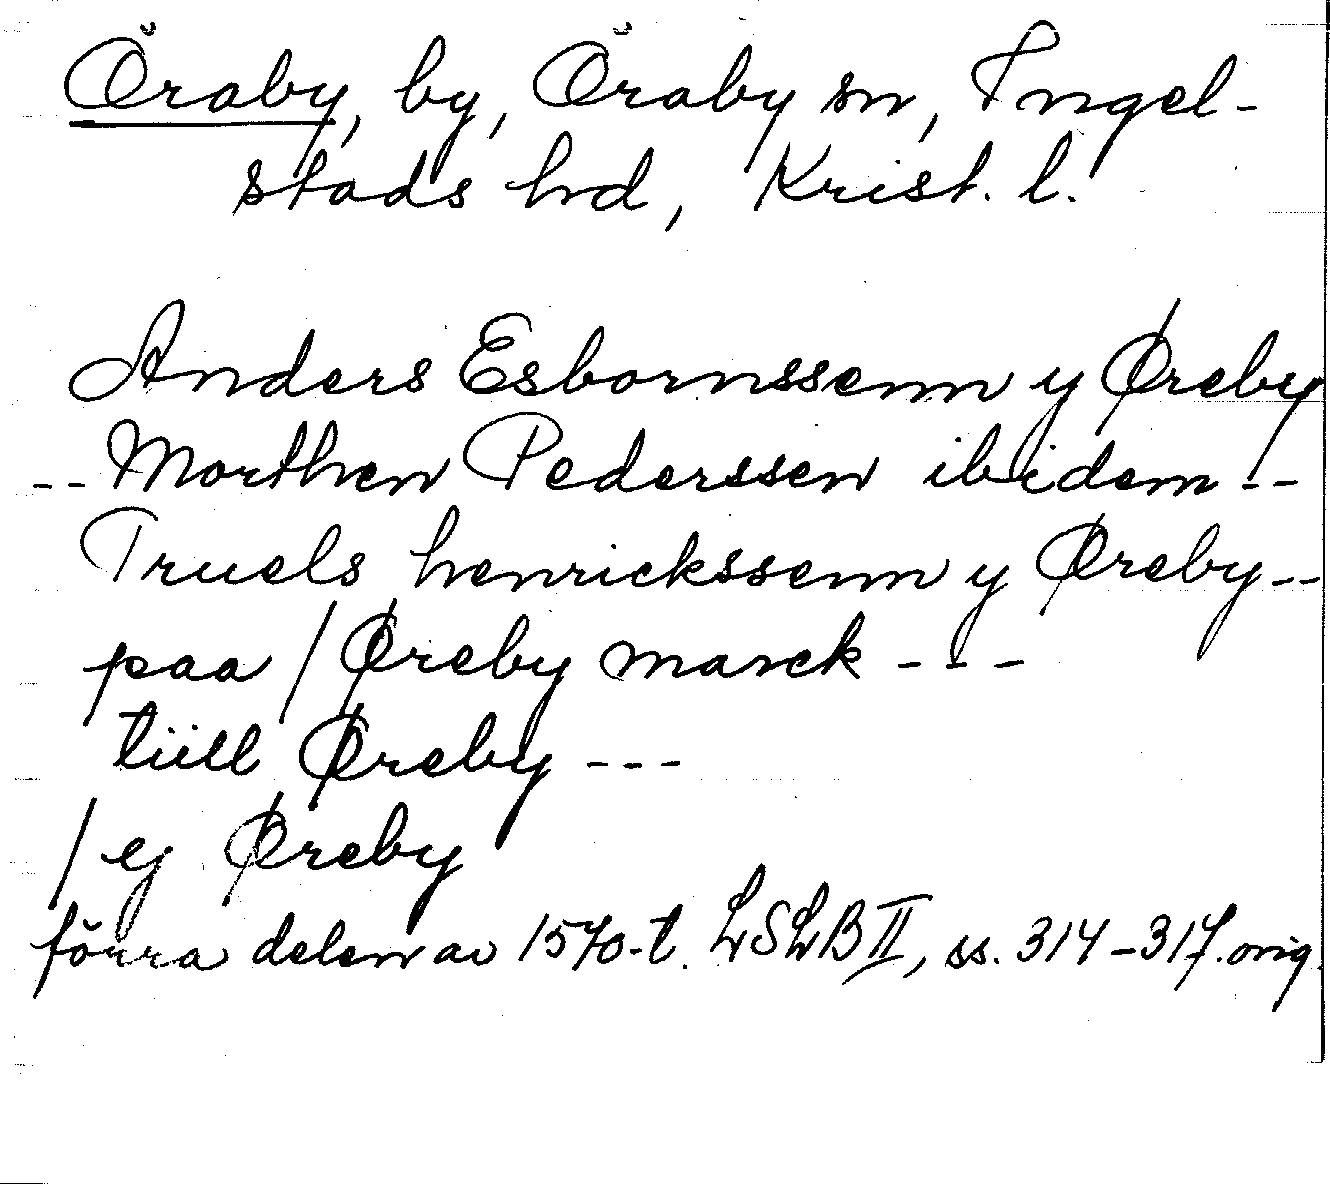 Öraby, by, Öraby sn, Ingel-
stads hd, Krist. l.
Anders Esbornssenn y Øreby
-- Morthen Pederssen ibidem --
Truels henrickssenn y Øreby --
paa / Øreby marck ---
tiill Øreby ---
/ ej Øreby
förra delen av 1570-t. LSLB II, ss. 314-317. orig.